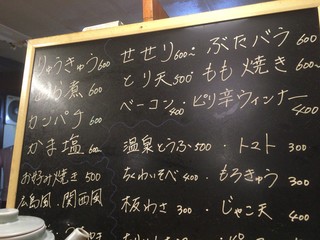 りゅうきゅう 600
煮 600
カンパチ 600
かま塩 600
お好み焼き 500
広島風・関西風
せせり 600~ ぶたバラ 600
とり天 500 もも焼き 600~
ベーコン 400・ピリ辛ウィンナー 400
温泉とうふ 500・トマト 300
ちゃわいそべ 400・もろきゅう 300
板わさ 300・じゃこ天 400